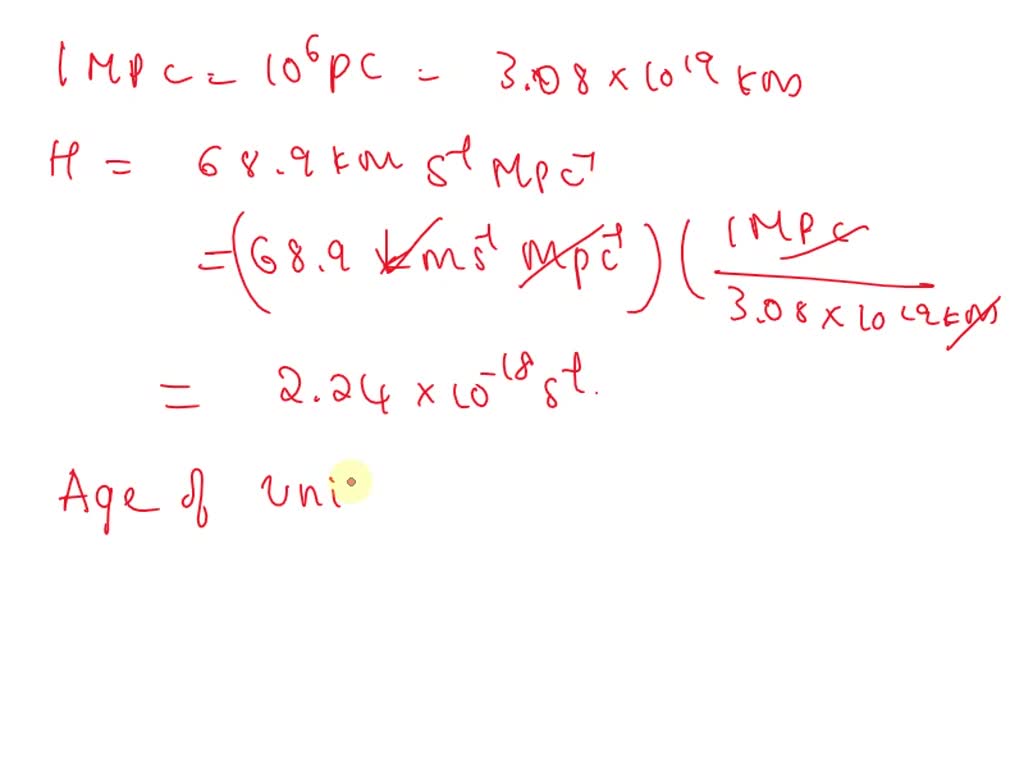 1 Mpc = 10⁶ pc = 3.08 × 10¹⁹ km
H = 68.9 km s⁻¹ Mpc⁻¹
= (68.9 km s⁻¹ Mpc⁻¹) (1 Mpc / 3.08 × 10¹⁹ km)
= 2.24 × 10⁻¹⁸ s⁻¹.
Age of uni